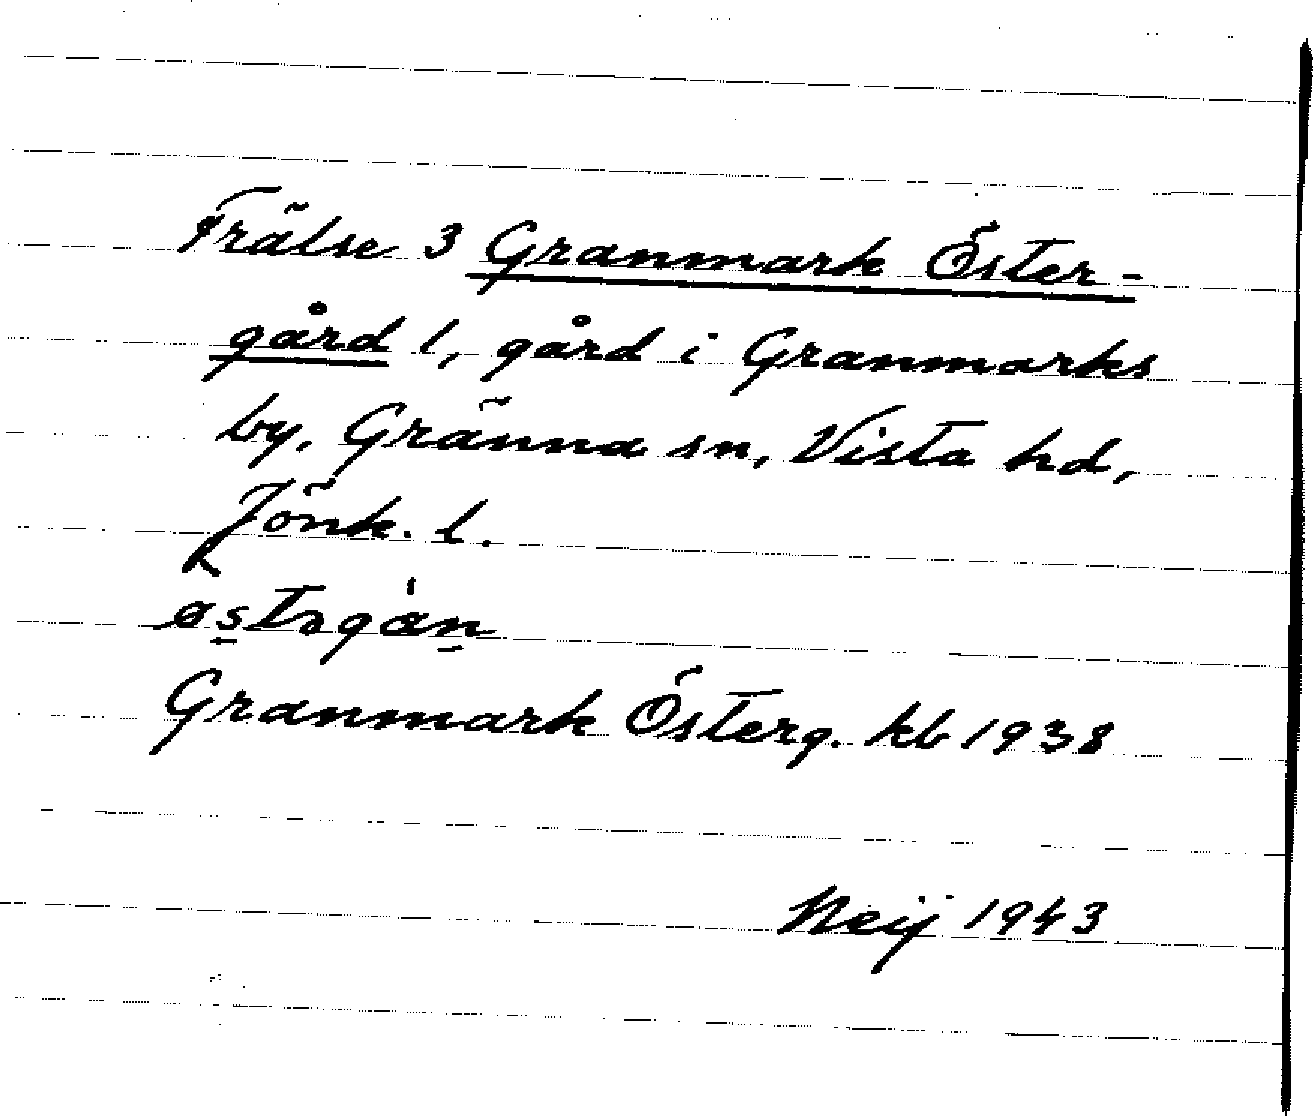 Frälse 3 Granmark Öster-
gård 1, gård i Granmarks
by, Gränna sn, Vista hd,
Jönk. l.
Granmark Österg. kb 1938
Neij 1943